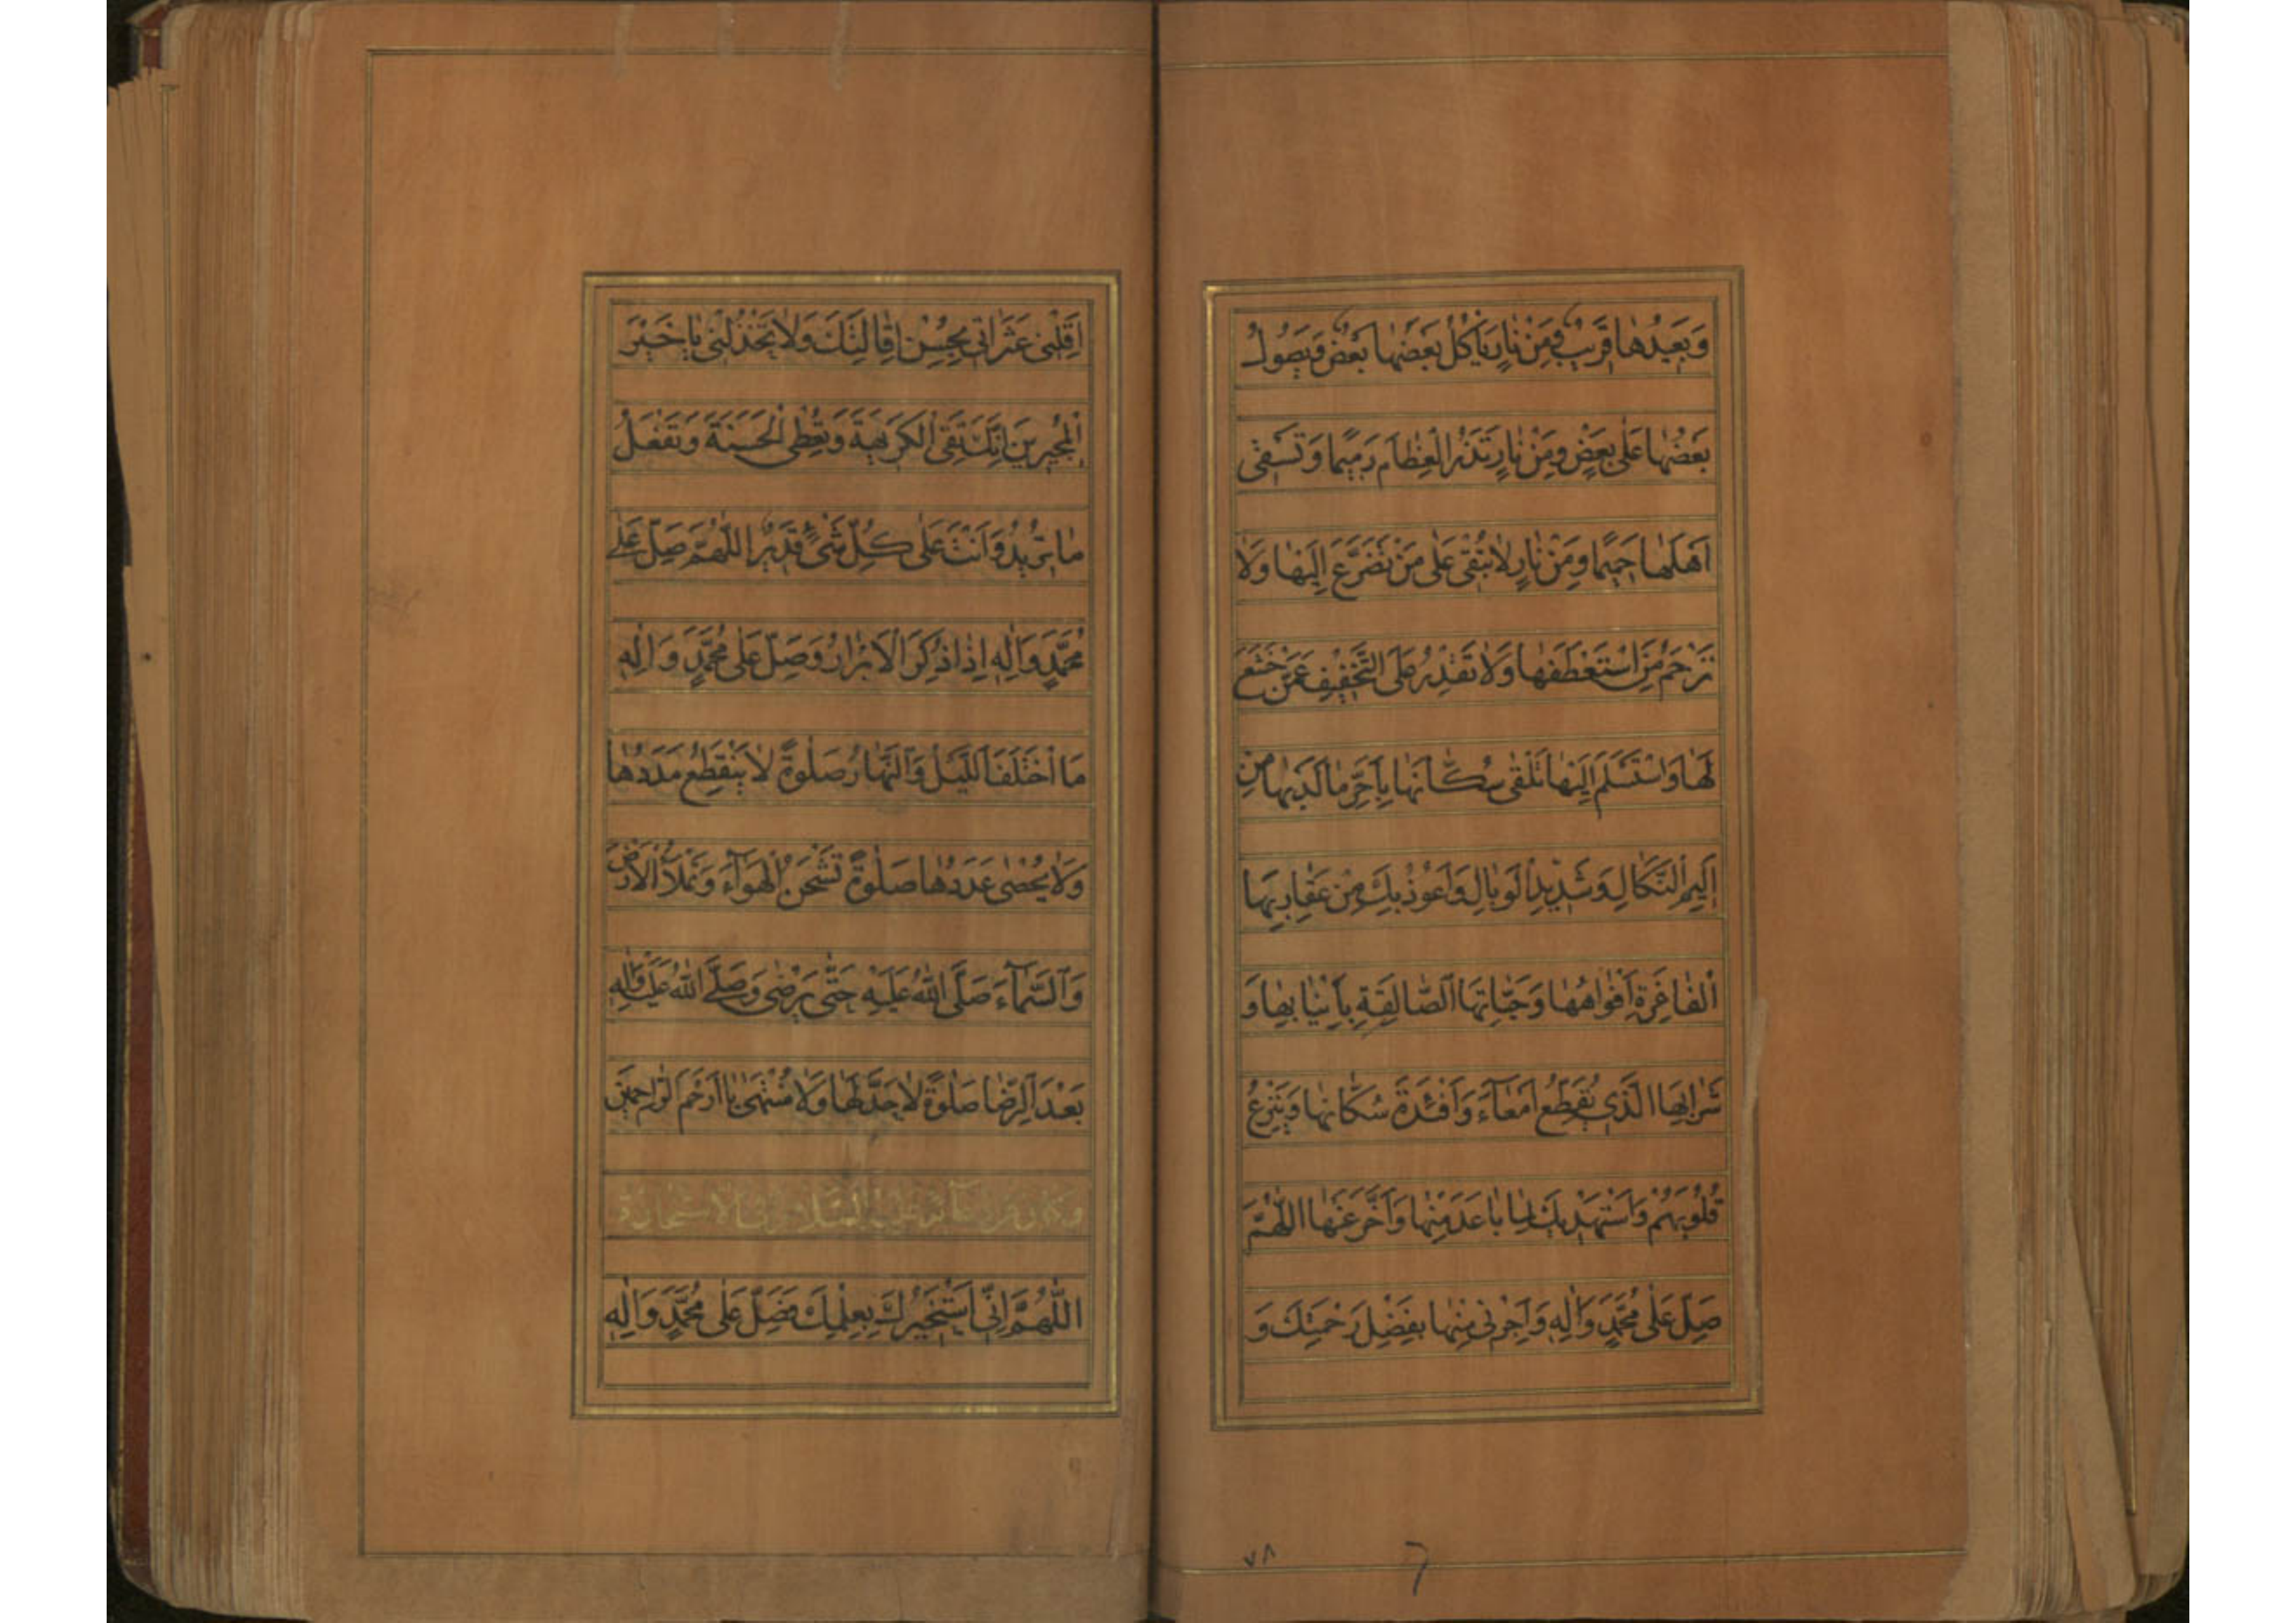 وَبَعيدُها قَريبٌ وَمِنْ نارٍ يَأْكُلُ بَعْضَها بَعْضٌ وَيَصُولُ
بَعْضُها عَلى بَعْضٍ وَمِنْ نارٍ تَذَرُ الْعِظامَ رَميمًا وَتَسْقى
اَهْلَها حَميمًا وَمِنْ نارٍ لا تُبْقى عَلى مَنْ تَضَرَّعَ اِلَيْها وَلا
تَرْحَمُ مَنِ اسْتَعْطَفَها وَلا تَقْدِرُ عَلَى التَّخْفيفِ عَمَّنْ خَشَعَ
لَها وَاسْتَسْلَمَ اِلَيْها تَلْقى سُكّانَها بِاَحَرِّ ما لَدَيْها مِنْ
اَليمِ النَّكالِ وَشَديدِ الْوَبالِ وَاَعُوذُ بِكَ مِنْ عَقارِبِهَا
الْفاغِرَةِ اَفْواهُها وَحَيّاتِهَا الصّالِقَةِ بِاَنْيابِها وَ
شَرابِهَا الَّذى يُقَطِّعُ اَمْعآءَ وَاَفْئِدَةَ سُكّانِها وَيَنْزِعُ
قُلُوبَهُمْ وَاَسْتَهْديكَ لِما باعَدَ مِنْها وَاَخَّرَ عَنْها اَللّهُمَّ
صَلِّ عَلى مُحَمَّدٍ وَالِهِ وَاَجِرْنى مِنْها بِفَضْلِ رَحْمَتِكَ وَ
٧٨
اَقِلْنى عَثَراتى بِحُسْنِ اِقالَتِكَ وَلا تَخْذُلْنى يا خَيْرَ
الْمُجيرينَ اِنَّكَ تَقِى الْكَريهَةَ وَتُعْطِى الْحَسَنَةَ وَتَفْعَلُ
ما تُريدُ وَاَنْتَ عَلى كُلِّ شَىْءٍ قَديرٌ اَللّهُمَّ صَلِّ عَلى
مُحَمَّدٍ وَالِهِ اِذا ذُكِرَ الْاَبْرارُ وَصَلِّ عَلى مُحَمَّدٍ وَالِهِ
مَا اخْتَلَفَ اللَّيْلُ وَالنَّهارُ صَلوةً لا يَنْقَطِعُ مَدَدُها
وَلا يُحْصى عَدَدُها صَلوةً تَشْحَنُ الْهَوآءَ وَتَمْلَأُ الْاَرْضَ
وَالسَّمآءَ صَلَّى اللهُ عَلَيْهِ حَتّى يَرْضى وَصَلَّى اللهُ عَلَيْهِ وَالِهِ
بَعْدَ الرِّضا صَلوةً لا حَدَّ لَها وَلا مُنْتَهى يا اَرْحَمَ الرّاحِمينَ
وَكانَ مِنْ دُعآئِهِ عَلَيْهِ السَّلامُ فِى الْاِسْتِخارَةِ
اَللّهُمَّ اِنّى اَسْتَخيرُكَ بِعِلْمِكَ فَصَلِّ عَلى مُحَمَّدٍ وَالِهِ